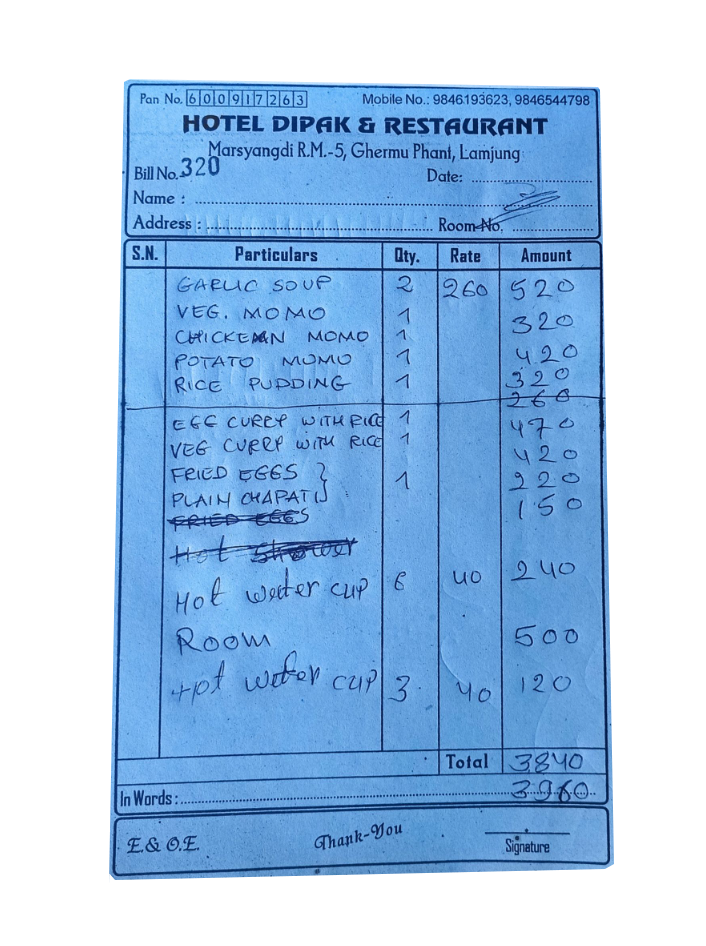 Pan No. 600917263 Mobile No.: 9846193623, 9846544798
HOTEL DIPAK & RESTAURANT
Marsyangdi R.M.-5, Ghermu Phant, Lamjung
Bill No. 320 Date:
Name :
Address : Room No.
S.N. Particulars Qty. Rate Amount
GARLIC SOUP 2 260 520
VEG. MOMO 1 320
CHICKEN MOMO 1 420
POTATO MOMO 1 320
RICE PUDDING 1 260
EGG CURRY WITH RICE 1 470
VEG CURRY WITH RICE 1 420
FRIED EGGS } 1 220
PLAIN CHAPATI 150
FRIED EGGS
Hot Shower
Hot water cup 6 40 240
Room 500
Hot water cup 3 40 120
Total 3840
In Words : 3960
E. & O.E. Thank-You Signature